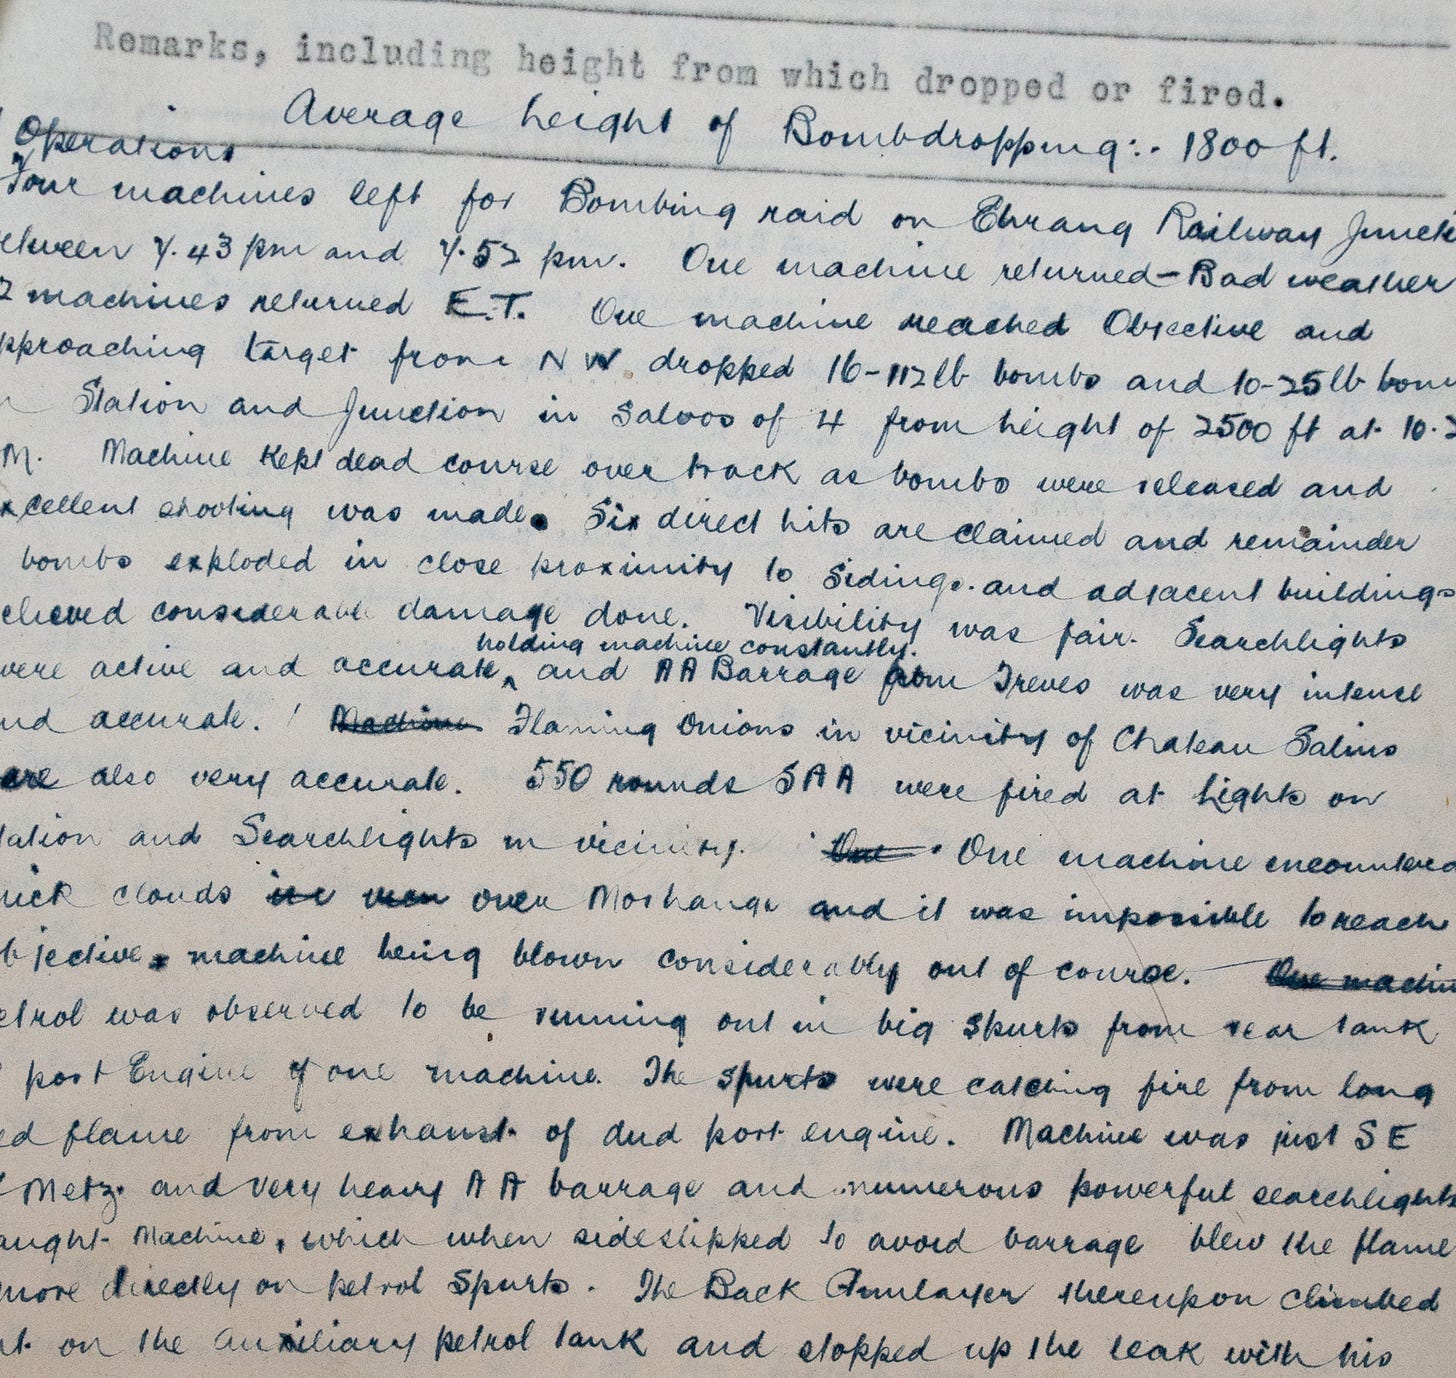 Remarks, including height from which dropped or fired.
Average height of Bombdropping:- 1800 ft.
Operations
Four machines left for Bombing raid on Ehrang Railway Junct
etween 7.43 pm and 7.52 pm. One machine returned - Bad weather
2 machines returned E.T. One machine reached Objective and
pproaching target from NW dropped 16-112lb bombs and 10-25lb bom
n Station and Junction in Salvos of 4 from height of 2500 ft at 10.2
M. Machine kept dead course over track as bombs were released and
xcellent shooting was made. Six direct hits are claimed and remainder
bombs exploded in close proximity to Sidings. and adjacent buildings
elieved considerable damage done. Visibility was fair. Searchlights
holding machine constantly.
were active and accurate, and AA Barrage from Treves was very intense
nd accurate. Machine Flaming Onions in vicinity of Chateau Salins
are also very accurate. 550 rounds SAA were fired at Lights on
tation and Searchlights in vicinity. One One machine encountered
hick clouds over Morhange and it was impossible to reach
bjective, machine being blown considerably out of course. One machin
etrol was observed to be running out in big spurts from rear tank
f port Engine of one machine. The spurts were catching fire from long
ed flame from exhaust of dud port engine. Machine was just SE
f Metz. and very heavy AA barrage and numerous powerful searchlights
aught Machine, which when sideslipped to avoid barrage blew the flame
more directly on petrol spurts. The Back Gunlayer thereupon climbed
ut on the auxiliary petrol tank and stopped up the leak with his